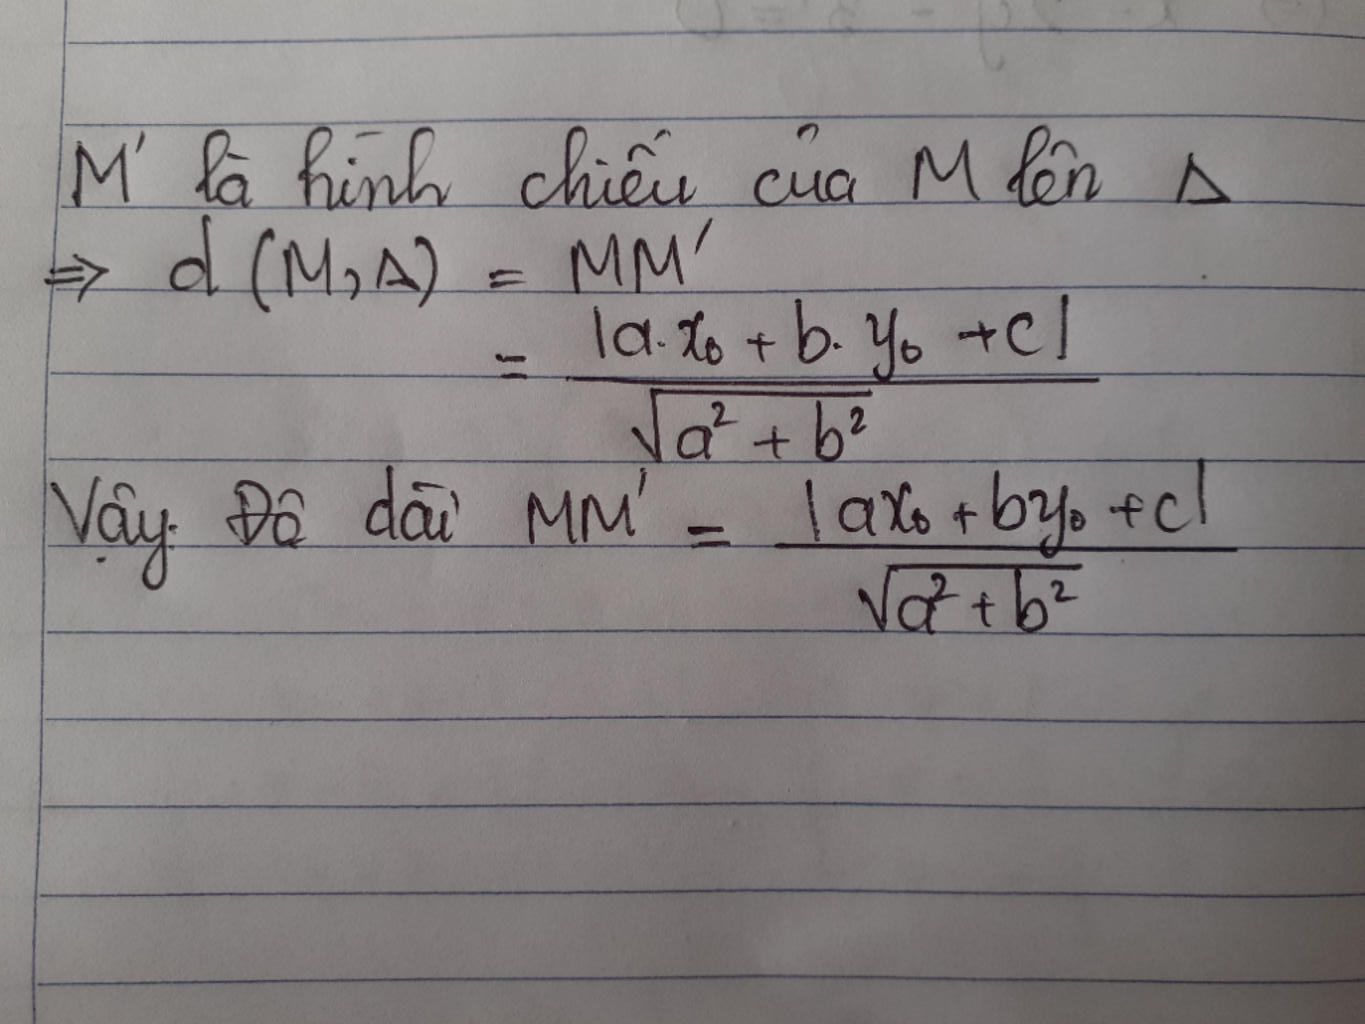 M' là hình chiếu của M lên Δ
⇒ d (M, Δ) = MM'
= |a.x₀ + b.y₀ + c| / √(a² + b²)
Vậy: Độ dài MM' = |ax₀ + by₀ + c| / √(a² + b²)